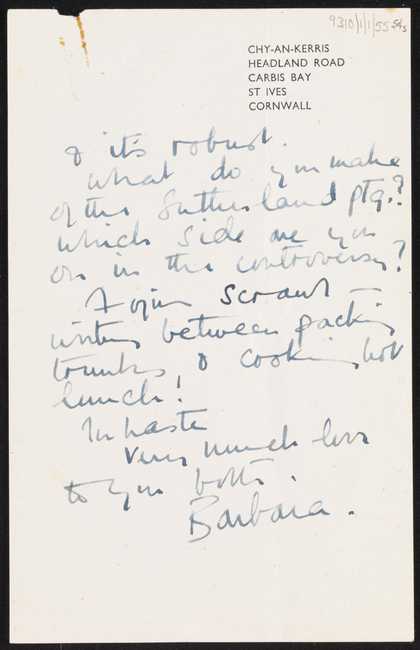 9310/1/1/55
CHY-AN-KERRIS
HEADLAND ROAD
CARBIS BAY
ST IVES
CORNWALL
& it's robust.
What do you make
of the Sutherland ptg.?
which side are you
on in the controversy?
Forgive scrawl –
writing between packing
trunks, & cooking hot
lunch!
In haste
very much love
to you both.
Barbara.